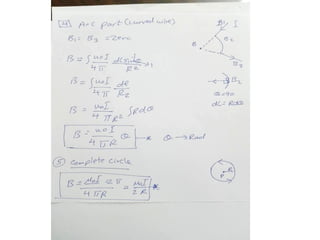 [4] Arc part (curved wire)
B₁ = B₃ = zero
B = ∫ μ₀I/4π dl sinθ/R² → 1
B = ∫ μ₀I/4π dl/R²
B = μ₀I/4πR² ∫Rdθ
B = μ₀I/4πR θ * θ → Rad
⑤ Complete circle
B = μ₀I × 2π/4πR = μ₀I/2R *
B₁ I
B₂
B₃
θ=90
dL = Rdθ
R
P